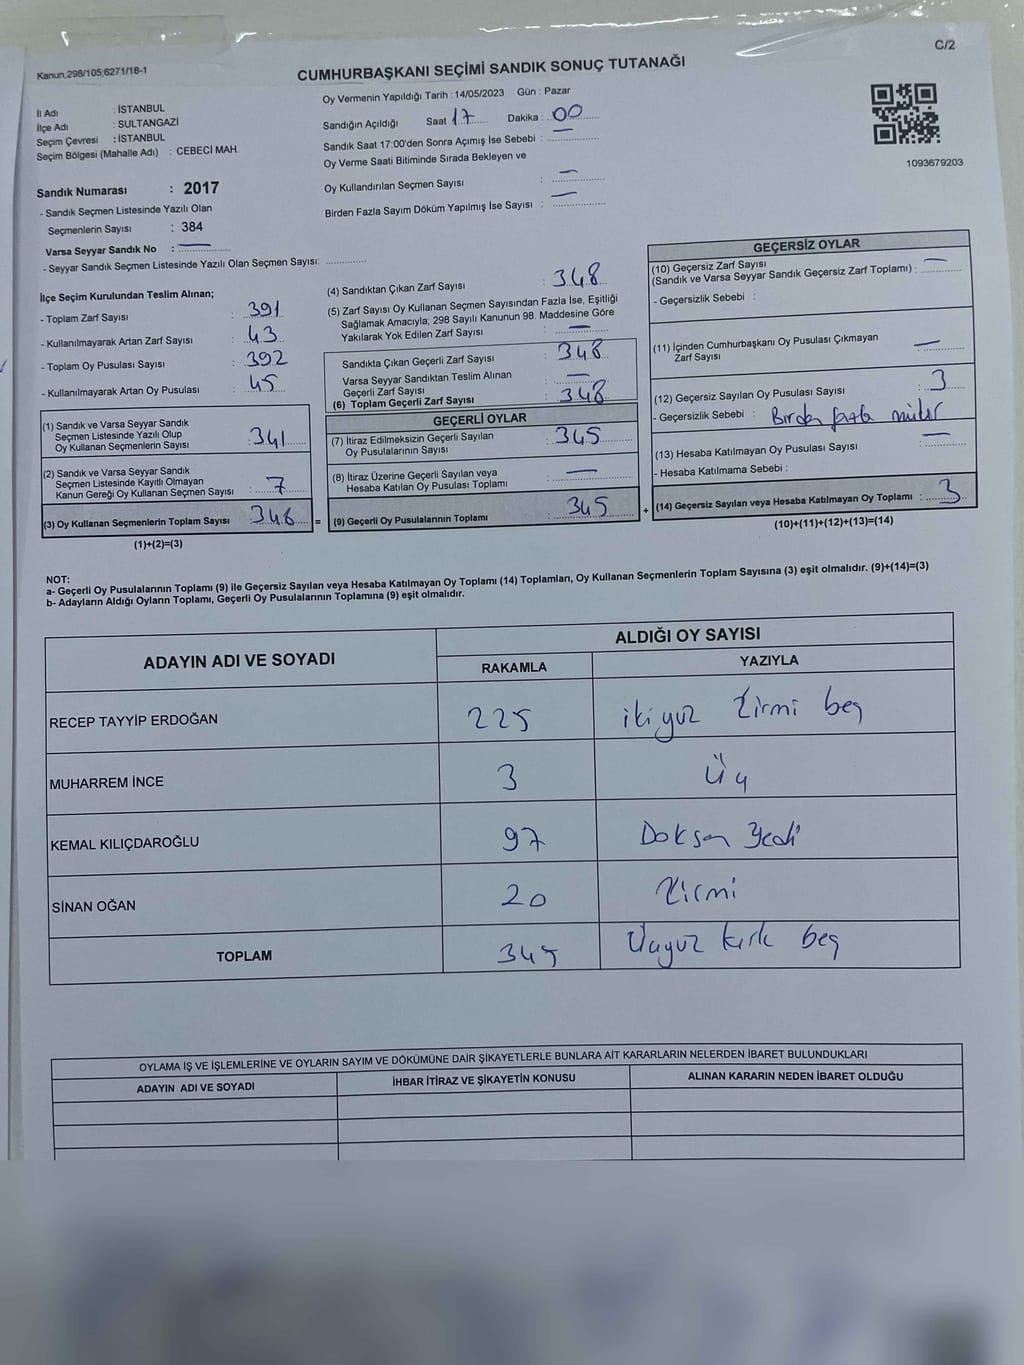 Kanun,298/105,6271/18-1
C/2
CUMHURBAŞKANI SEÇİMİ SANDIK SONUÇ TUTANAĞI
İl Adı : İSTANBUL
İlçe Adı : SULTANGAZİ
Seçim Çevresi : İSTANBUL
Seçim Bölgesi (Mahalle Adı) : CEBECİ MAH.
Sandık Numarası : 2017
- Sandık Seçmen Listesinde Yazılı Olan
Seçmenlerin Sayısı : 384
Varsa Seyyar Sandık No : —
- Seyyar Sandık Seçmen Listesinde Yazılı Olan Seçmen Sayısı:
Oy Vermenin Yapıldığı Tarih : 14/05/2023 Gün : Pazar
Sandığın Açıldığı Saat 17 Dakika : 00
Sandık Saat 17:00'den Sonra Açımış İse Sebebi : —
Oy Verme Saati Bitiminde Sırada Bekleyen ve
Oy Kullandırılan Seçmen Sayısı : —
Birden Fazla Sayım Döküm Yapılmış İse Sayısı : —
1093679203
İlçe Seçim Kurulundan Teslim Alınan;
- Toplam Zarf Sayısı : 391
- Kullanılmayarak Artan Zarf Sayısı : 43
- Toplam Oy Pusulası Sayısı : 392
- Kullanılmayarak Artan Oy Pusulası : 45
(1) Sandık ve Varsa Seyyar Sandık
Seçmen Listesinde Yazılı Olup
Oy Kullanan Seçmenlerin Sayısı : 341
(2) Sandık ve Varsa Seyyar Sandık
Seçmen Listesinde Kayıtlı Olmayan
Kanun Gereği Oy Kullanan Seçmen Sayısı : 7
(3) Oy Kullanan Seçmenlerin Toplam Sayısı : 348 =
(1)+(2)=(3)
(4) Sandıktan Çıkan Zarf Sayısı : 348
(5) Zarf Sayısı Oy Kullanan Seçmen Sayısından Fazla İse, Eşitliği
Sağlamak Amacıyla; 298 Sayılı Kanunun 98. Maddesine Göre
Yakılarak Yok Edilen Zarf Sayısı : —
Sandıkta Çıkan Geçerli Zarf Sayısı : 348
Varsa Seyyar Sandıktan Teslim Alınan
Geçerli Zarf Sayısı : —
(6) Toplam Geçerli Zarf Sayısı : 348
GEÇERLİ OYLAR
(7) İtiraz Edilmeksizin Geçerli Sayılan
Oy Pusulalarının Sayısı : 345
(8) İtiraz Üzerine Geçerli Sayılan veya
Hesaba Katılan Oy Pusulası Toplamı : —
(9) Geçerli Oy Pusulalarının Toplamı : 345 +
GEÇERSİZ OYLAR
(10) Geçersiz Zarf Sayısı
(Sandık ve Varsa Seyyar Sandık Geçersiz Zarf Toplamı) : —
- Geçersizlik Sebebi :
(11) İçinden Cumhurbaşkanı Oy Pusulası Çıkmayan
Zarf Sayısı : —
(12) Geçersiz Sayılan Oy Pusulası Sayısı : 3
- Geçersizlik Sebebi : Birden fazla mühür
(13) Hesaba Katılmayan Oy Pusulası Sayısı : —
- Hesaba Katılmama Sebebi :
(14) Geçersiz Sayılan veya Hesaba Katılmayan Oy Toplamı : 3
(10)+(11)+(12)+(13)=(14)
NOT:
a- Geçerli Oy Pusulalarının Toplamı (9) ile Geçersiz Sayılan veya Hesaba Katılmayan Oy Toplamı (14) Toplamları, Oy Kullanan Seçmenlerin Toplam Sayısına (3) eşit olmalıdır. (9)+(14)=(3)
b- Adayların Aldığı Oyların Toplamı, Geçerli Oy Pusulalarının Toplamına (9) eşit olmalıdır.
ADAYIN ADI VE SOYADI
ALDIĞI OY SAYISI
RAKAMLA YAZIYLA
RECEP TAYYİP ERDOĞAN 225 ikiyüz Yirmi beş
MUHARREM İNCE 3 Üç
KEMAL KILIÇDAROĞLU 97 Doksan Yedi
SİNAN OĞAN 20 Yirmi
TOPLAM 345 Üçyüz kırk beş
OYLAMA İŞ VE İŞLEMLERİNE VE OYLARIN SAYIM VE DÖKÜMÜNE DAİR ŞİKAYETLERLE BUNLARA AİT KARARLARIN NELERDEN İBARET BULUNDUKLARI
ADAYIN ADI VE SOYADI İHBAR İTİRAZ VE ŞİKAYETİN KONUSU ALINAN KARARIN NEDEN İBARET OLDUĞU